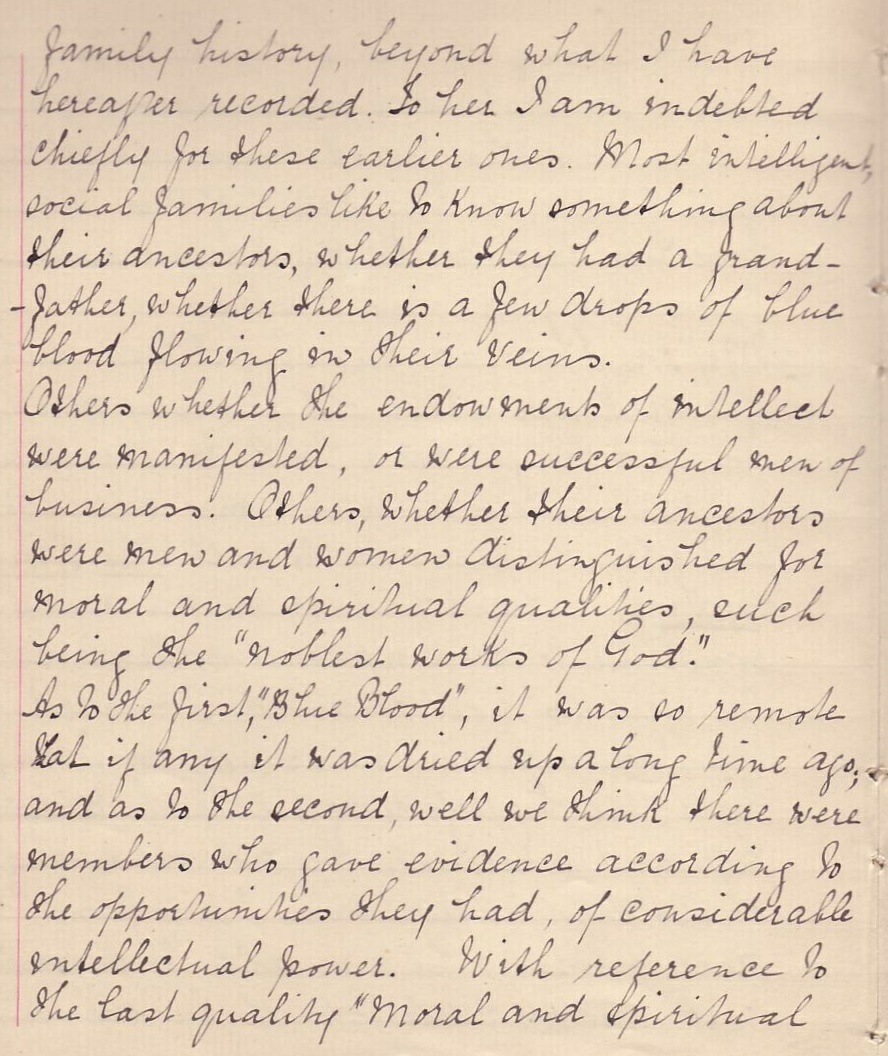 family history, beyond what I have
hereafter recorded. To her I am indebted
chiefly for these earlier ones. Most intelligent,
social families like to know something about
their ancestors, whether they had a grand-
-father, whether there is a few drops of blue
blood flowing in their veins.
Others whether the endowments of intellect
were manifested, or were successful men of
business. Others, whether their ancestors
were men and women distinguished for
moral and spiritual qualities, such
being the "noblest works of God."
As to the first, "Blue Blood", it was so remote
that if any it was dried up a long time ago;
and as to the second, well we think there were
members who gave evidence according to
the opportunities they had, of considerable
intellectual power. With reference to
the last quality "Moral and spiritual